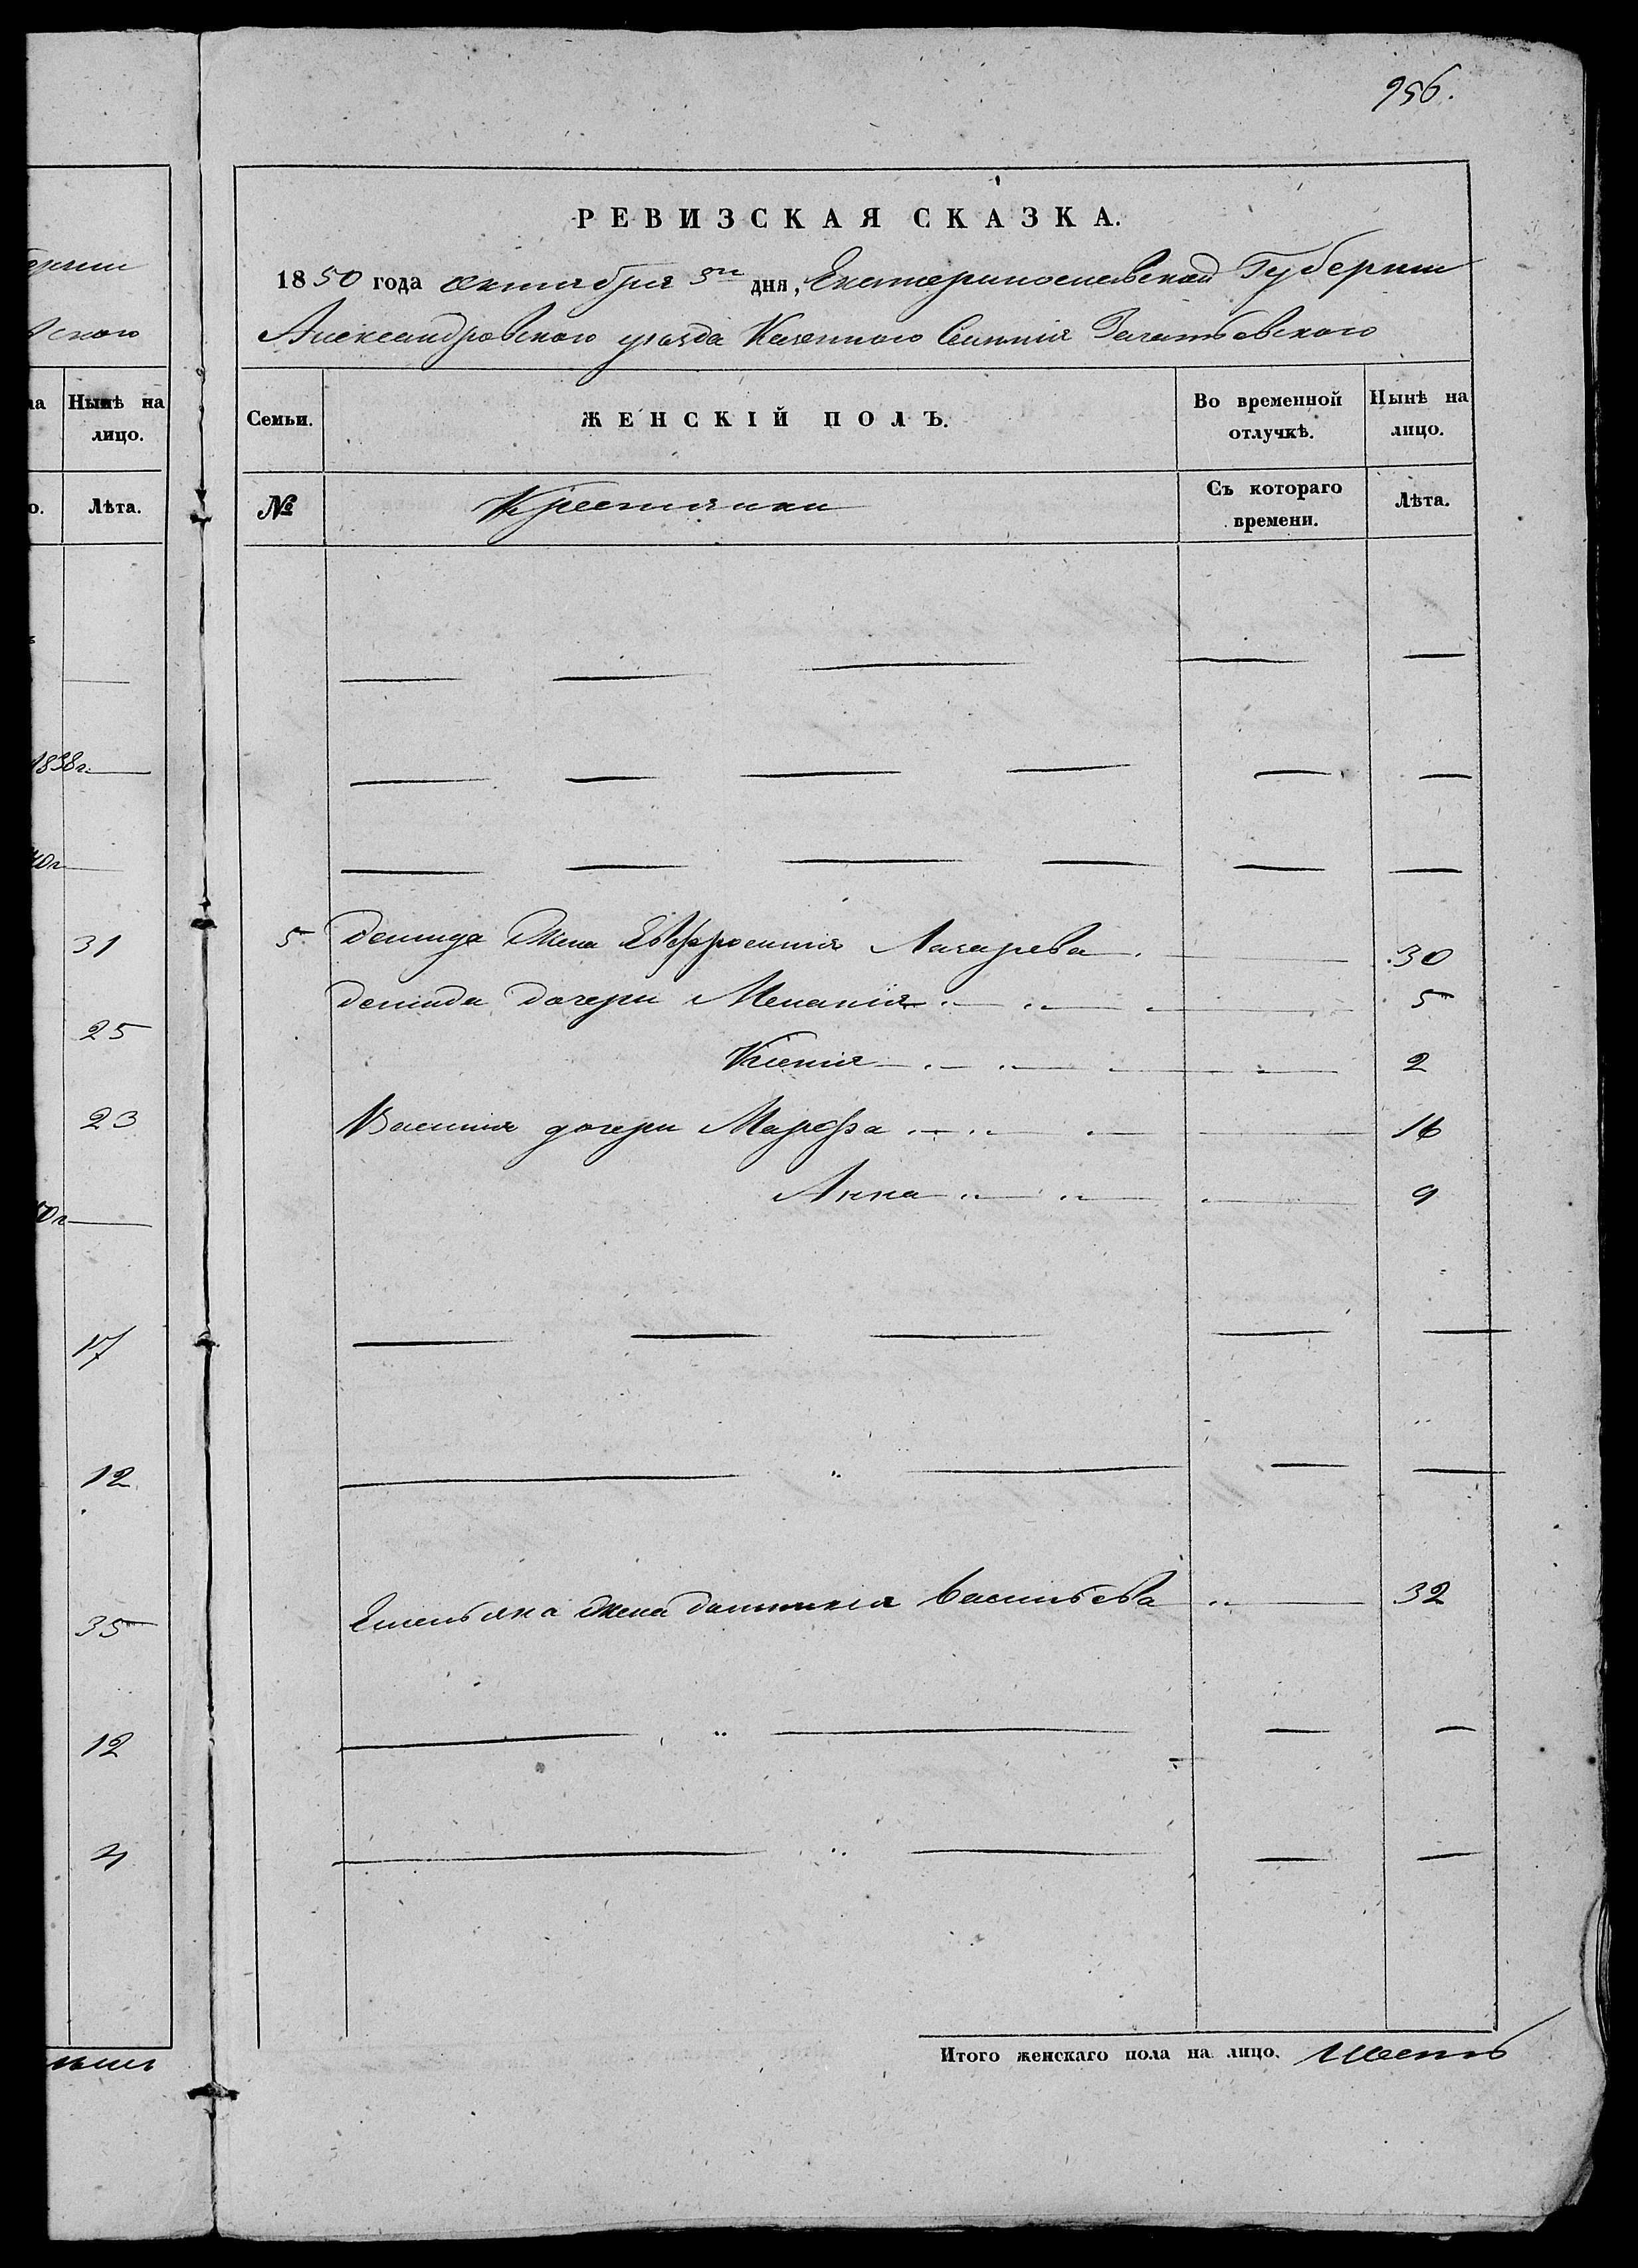 956.
РЕВИЗСКАЯ СКАЗКА.
1850 года октября 3го дня, Екатеринославской Губернии
Александровского уезда Казенного Селения
ернии
ского
Нынѣ на лицо.
Лѣта.
Семьи.
ЖЕНСКІЙ ПОЛЪ.
Во временной отлучкѣ.
Нынѣ на лицо.
№
Крестянки
Съ котораго времени.
Лѣта.
1838г.
5 Демида Жена Евфросинія Лазарева 30
31
Демида дочери Меланія 5
25
Ксенія 2
23
Василия дочери Марфа 16
Анна 9
17
12
Емельяна Жена Домникія Васильева 32
35
12
4
Итого женскаго пола на лицо. Шесть